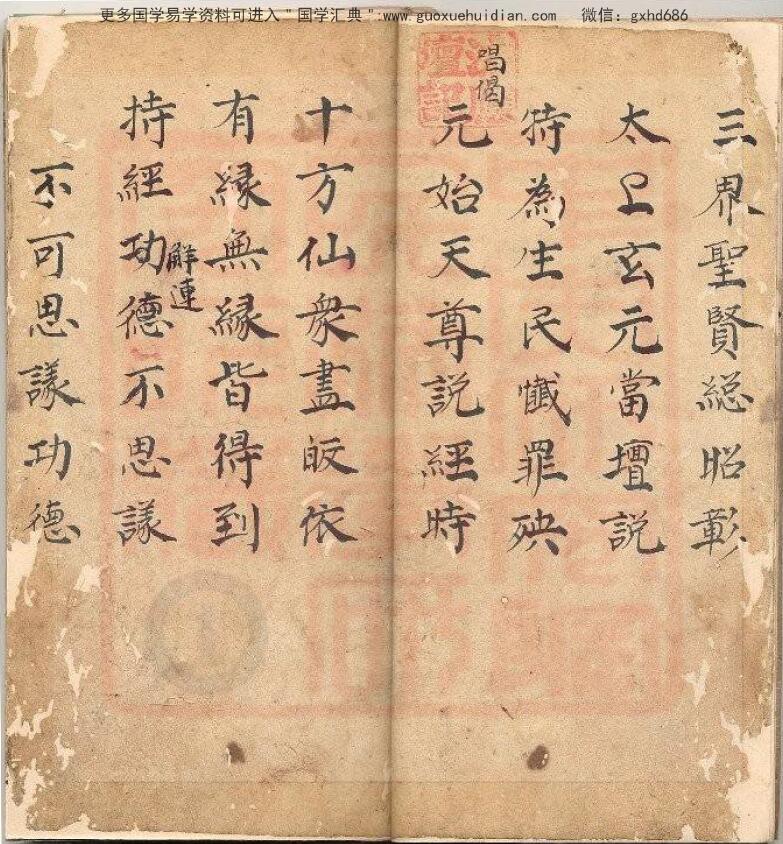 更多国学易学资料可进入＂国学汇典＂:www.guoxuehuidian.com 微信：gxhd686
三界聖賢総昭彰
太上玄元當壇說
特為生民懺罪殃
唱偈
元始天尊說經時
十方仙衆盡皈依
有縁無縁皆得到
持經功德不思議
解連
不可思議功德